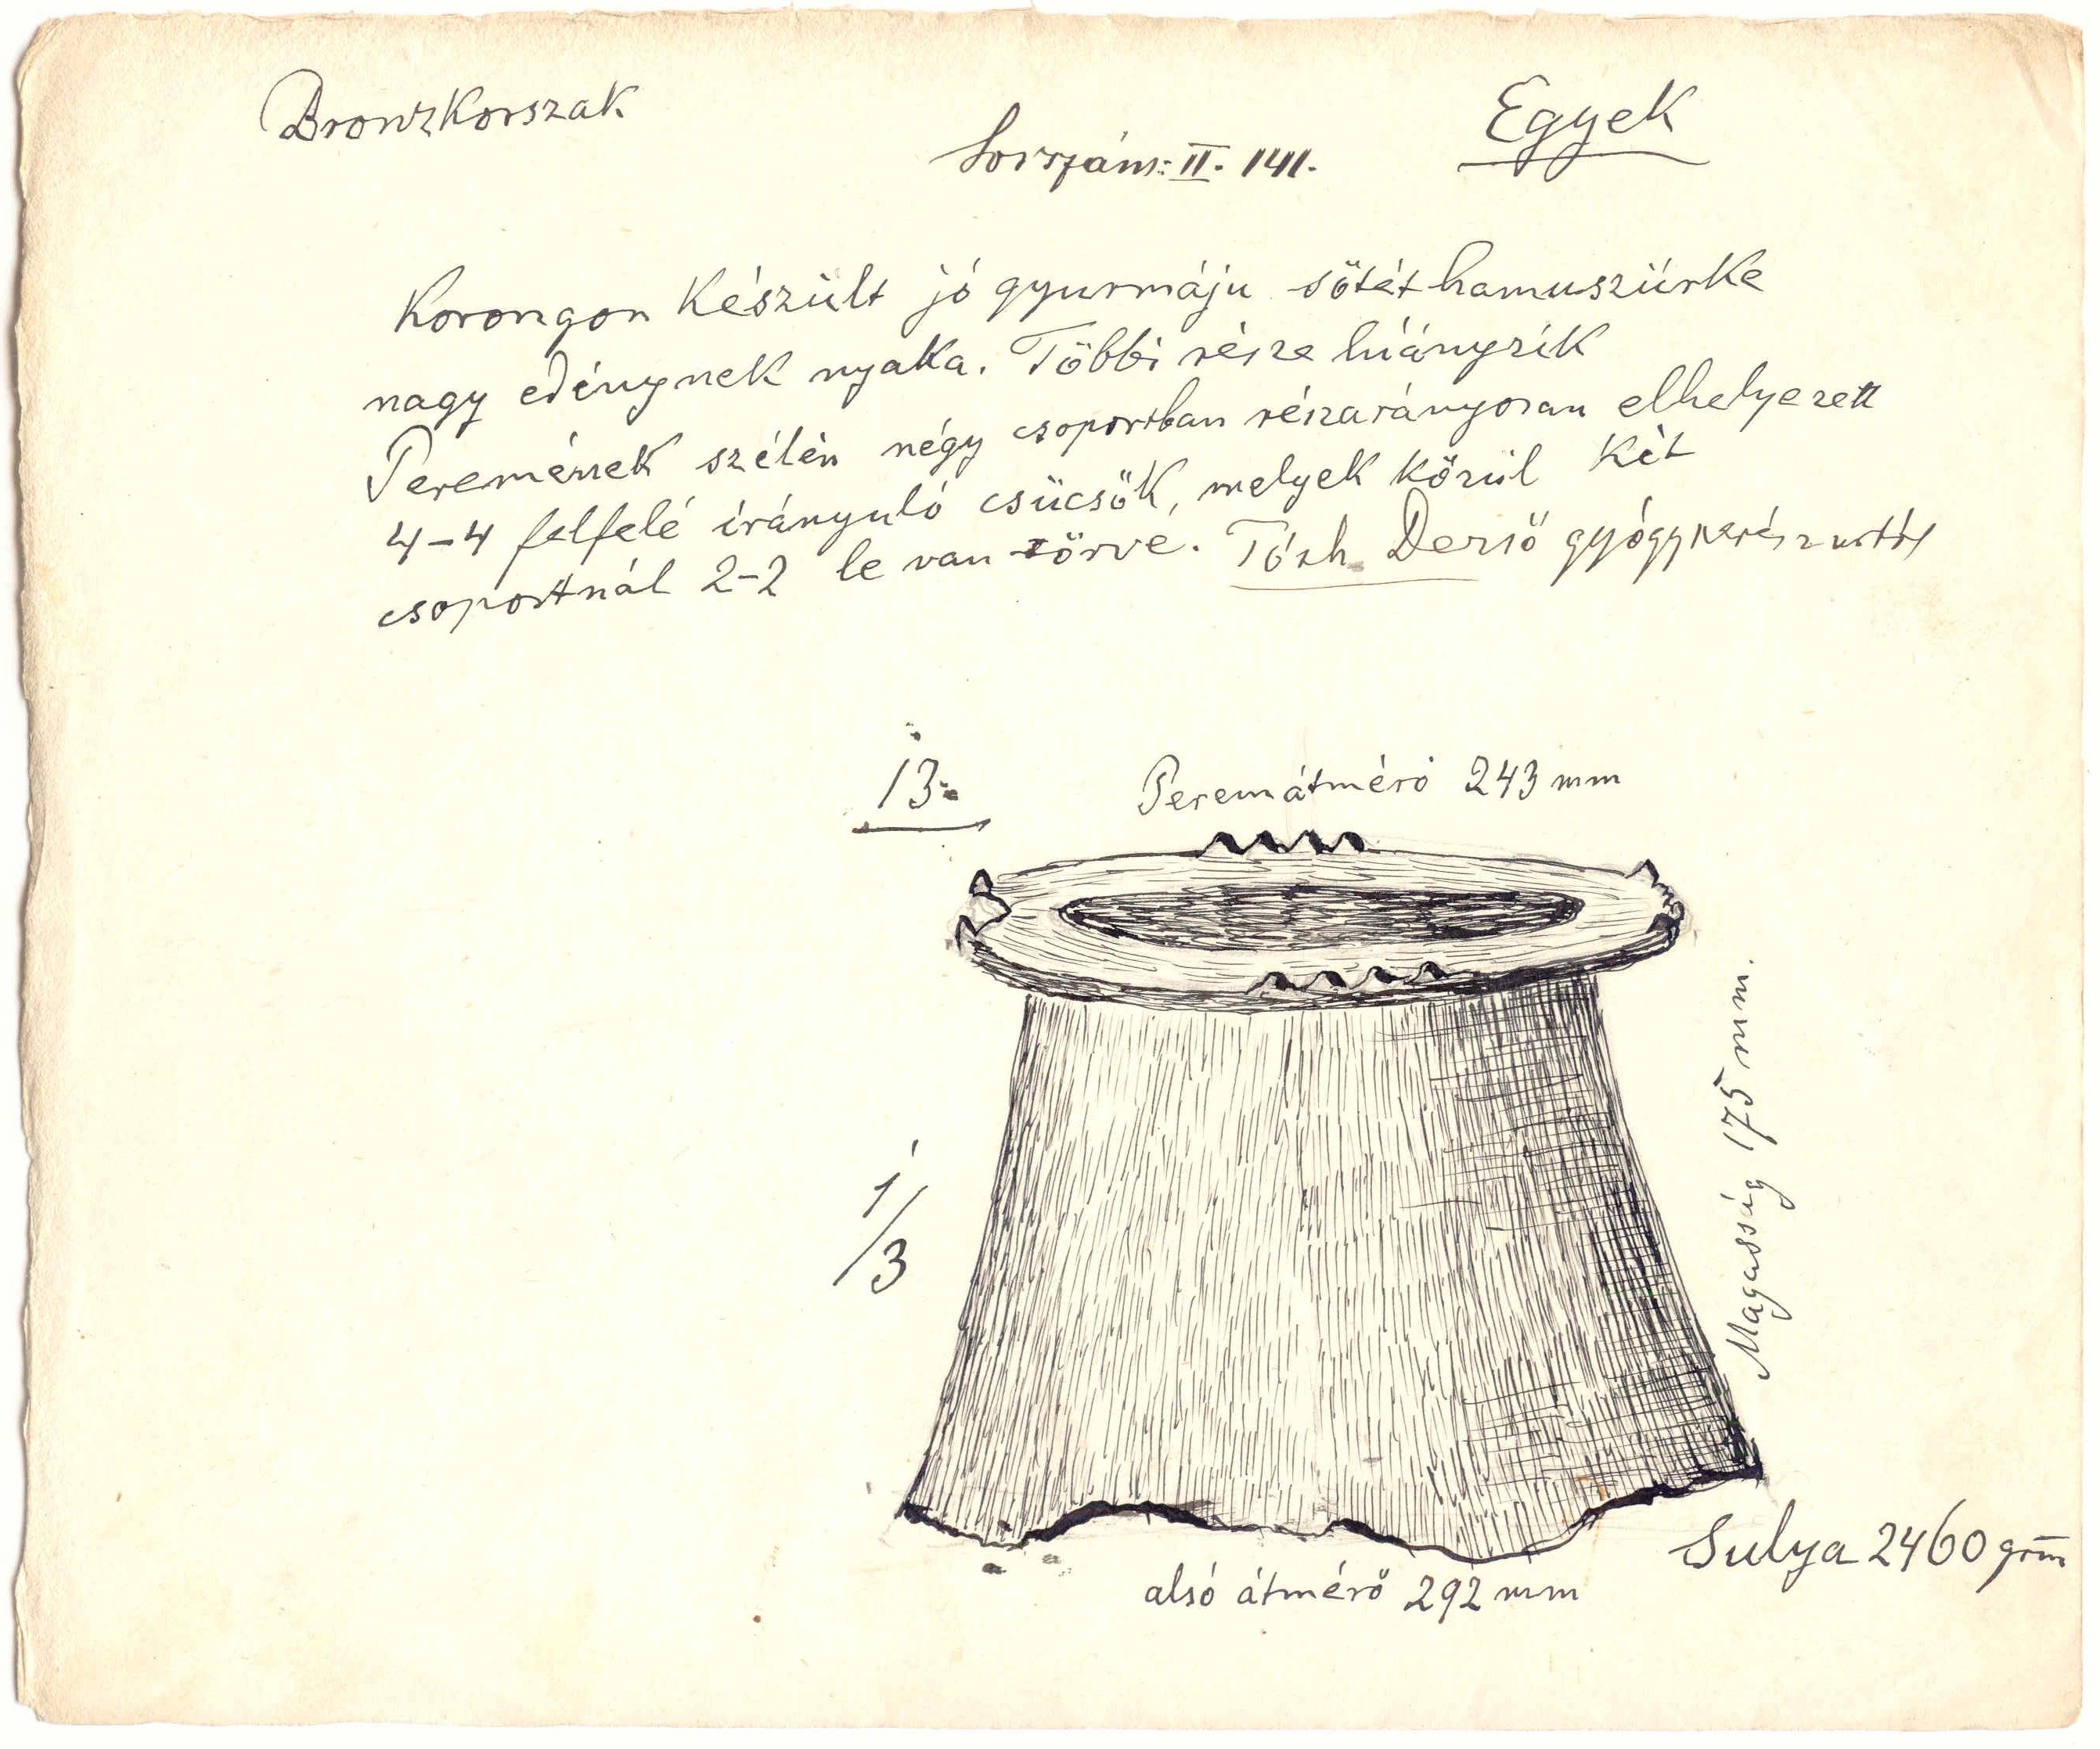 Bronzkorszak
Sorszám: II. 141.
Egyek
Korongon készült jó gyurmáju sötét hamuszürke
nagy edénynek nyaka. Többi része hiányzik
Peremének szélén négy csoportban részarányosan elhelyezett
4-4 felfelé irányuló csücsök, melyek közül két
csoportnál 2-2 le van törve. Tóth Dezső
13.
Peremátmérő 243 mm
Magasság 175 mm.
1/3
Sulya 2460 grm
alsó átmérő 292 mm